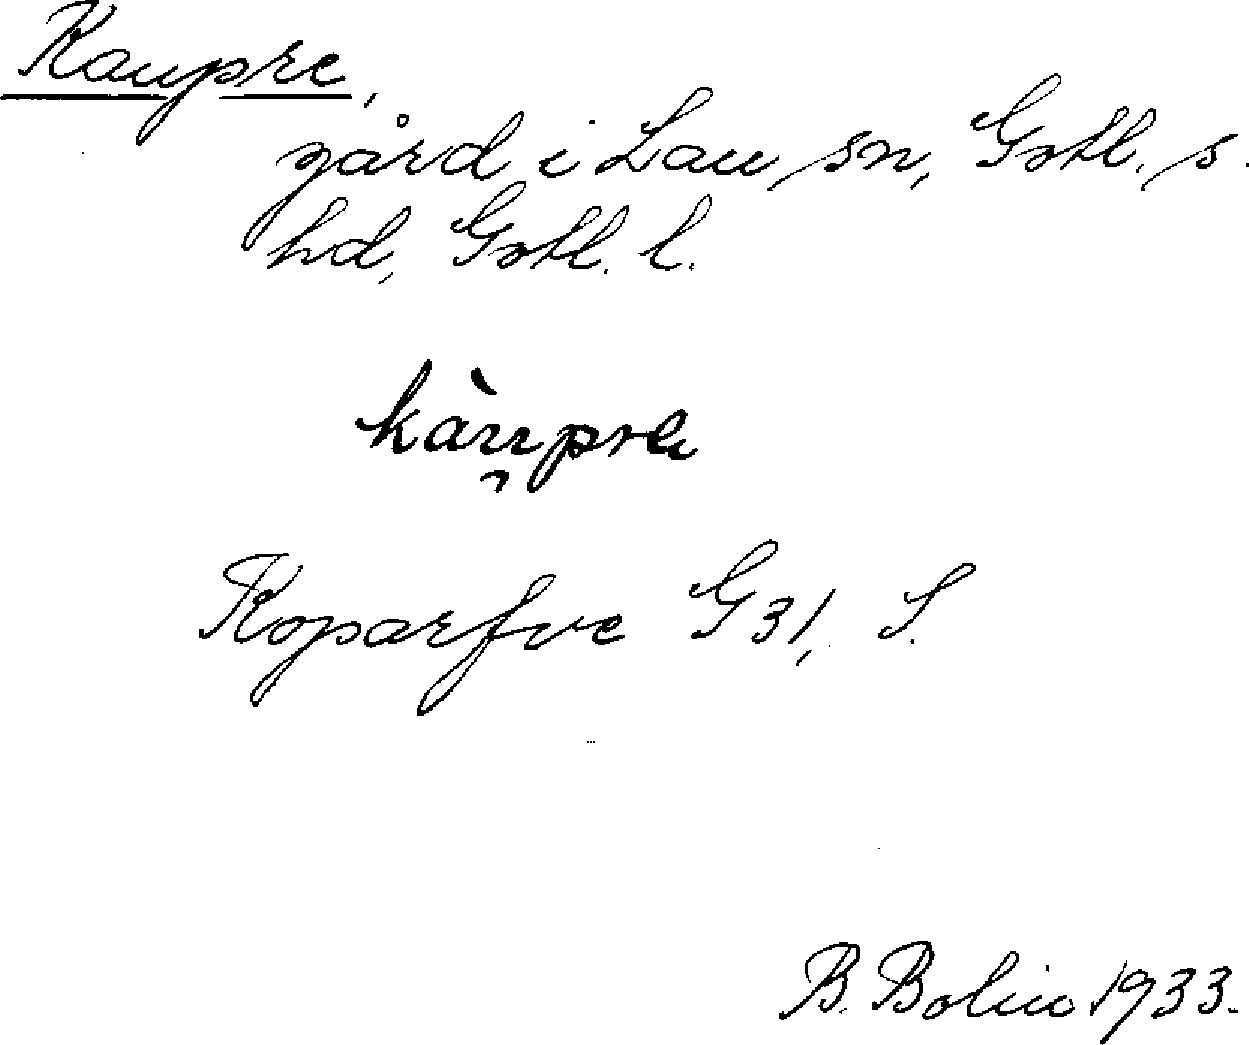 Kaupre,
gård i Lau sn, Gotl. s.
hd, Gotl. l.
kàu̯pre
Koparfve G31, S.
B. Bolin 1933.